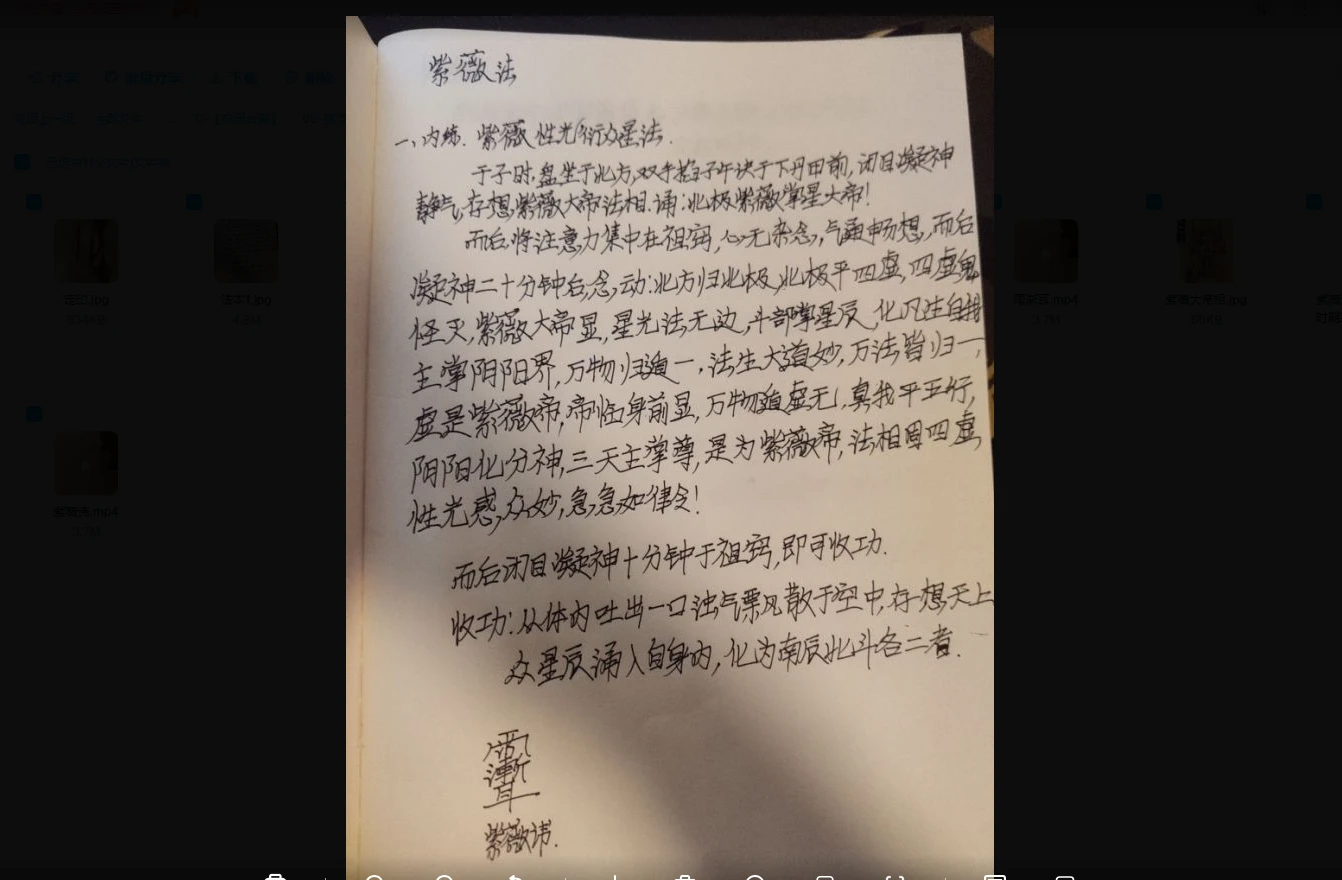 紫薇法
一、内练. 紫薇性光衍众星法.
于子时,盘坐于北方,双手掐子午诀于下丹田前,闭目凝神
静气,存想紫薇大帝法相.诵:北极紫薇掌星大帝!
而后将注意力集中在祖窍,心无杂念,气通畅想,而后
凝神二十分钟后,念动:北方归北极,北极平四虚,四虚鬼
怪灭,紫薇大帝显,星光法无边,斗部掌星辰,化凡注自
主掌阴阳界,万物归道一,法生大道妙,万法皆归一,
虚是紫薇帝,帝临身前显,万物道虚无,真我平五行,
阴阳化分神,三天主掌尊,是为紫薇帝,法相周四虚,
性光感众妙,急急如律令!
而后闭目凝神十分钟于祖窍,即可收功.
收功:从体内吐出一口浊气飘散于空中,存想天上
众星辰涌入自身内,化为南辰北斗各二者.
紫薇讳.